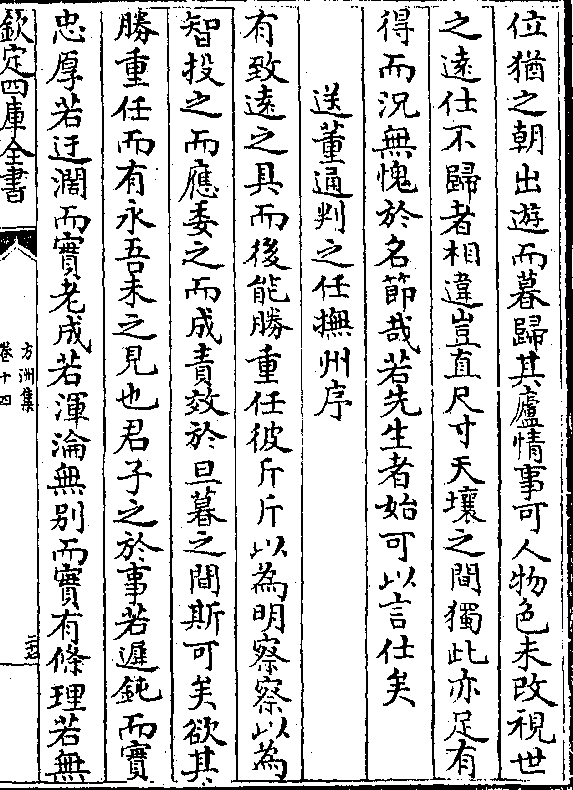 位猶之朝出遊而暮歸其廬情事可人物色未改視世
之遠仕不歸者相違豈直尺寸天壤之間獨此亦足有
得而況無愧於名節哉若先生者始可以言仕矣
送董通判之任撫州序
有致遠之具而後能勝重任彼斤斤以為明察察以為
智投之而應委之而成責效於旦暮之間斯可矣欲其
勝重任而有永吾未之見也君子之於事若遲鈍而實
忠厚若迂濶而實老成若渾淪無别而實有條理若無
欽定四庫全書
方洲集
卷十四